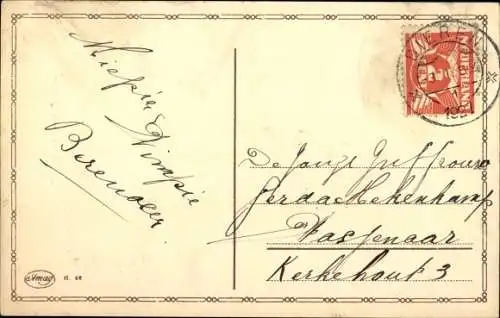 Miepie &
Wimpie
Berenoer.
NEDERLAND
De Jonge Juffrouw
Gerda Hekenkamp
Wassenaar
Kerkehout 3
Amag
n. 68